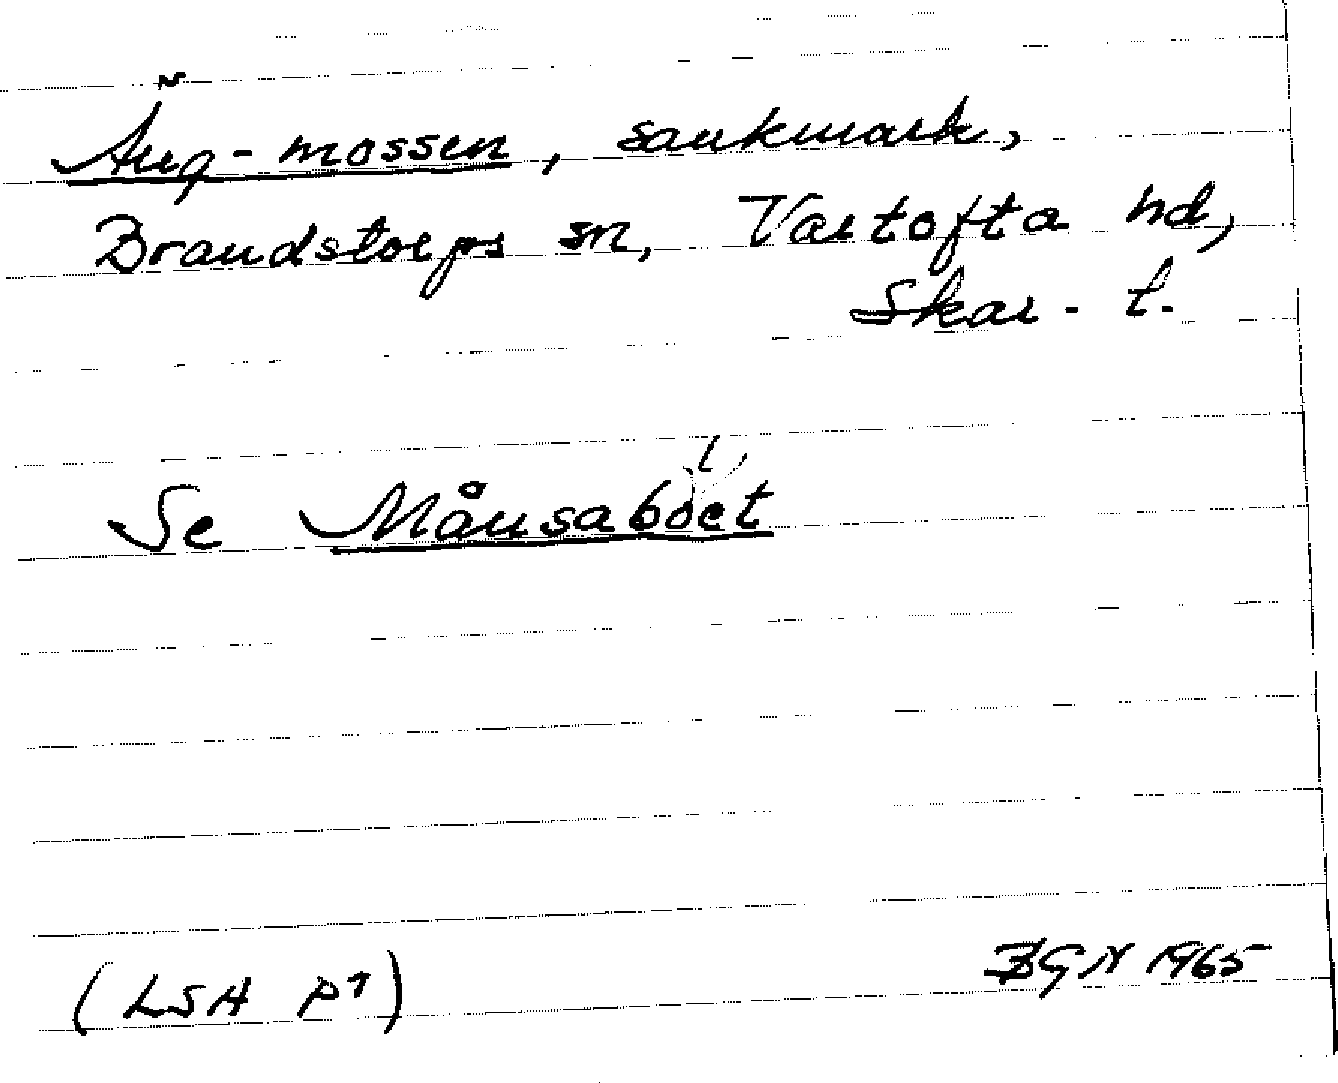 Äng-mossen, sankmark,
Brandstorps sn, Vartofta hd,
Skar. l.
Se Månsaböet
(LSA P1)
BGN 1965